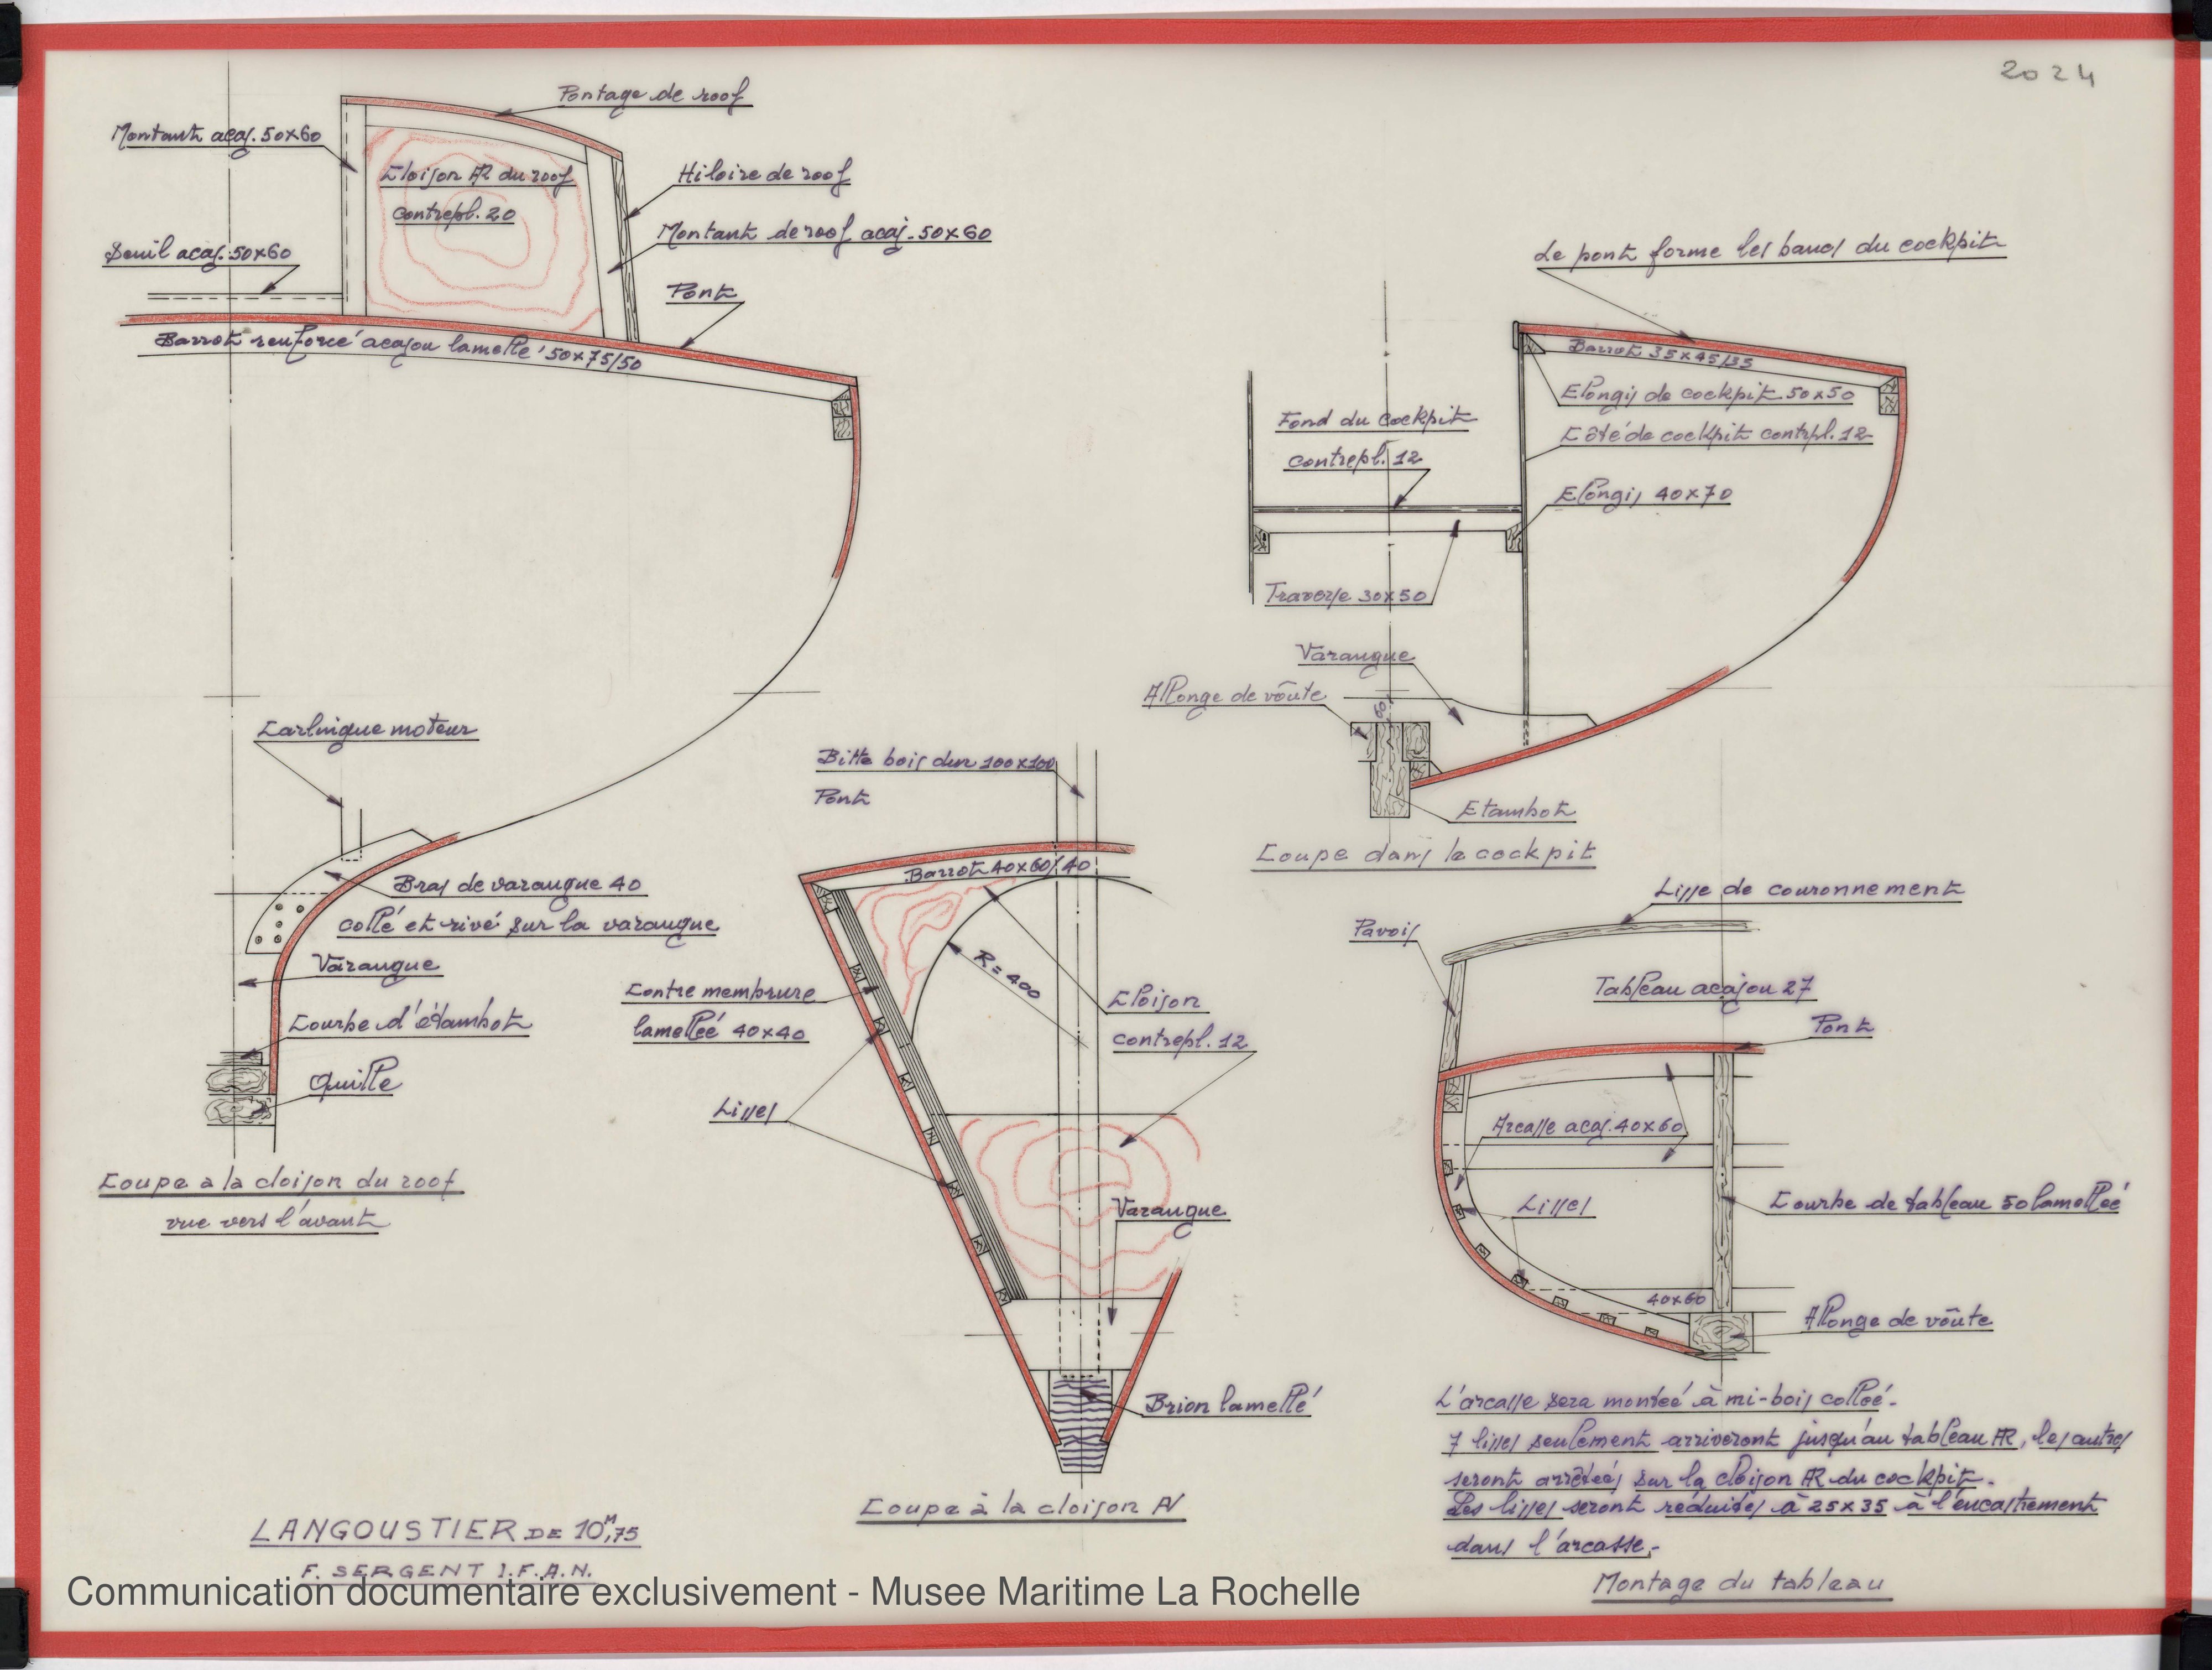 2024
Pontage de roof
Montant acaj. 50x60
Cloison AR du roof
contrepl. 20
Hiloire de roof
Montant de roof acaj. 50x60
Seuil acaj. 50x60
Pont
Barrot renforcé acajou lamellé 50x75/50
Carlingue moteur
Bras de varangue 40
collé et rivé sur la varangue
Varangue
Courbe d'étambot
Quille
Coupe a la cloison du roof
vue vers l'avant
Le pont forme les bancs du cockpit
Barrot 35x45/35
Elongis de cockpit 50x50
Fond du cockpit
contrepl. 12
Côté de cockpit contrpl. 12
Elongis 40x70
Traverse 30x50
Varangue
Allonge de voûte
60
Etambot
Coupe dans le cockpit
Bitte bois dur 100x100
Pont
Barrot 40x60/40
R=400
Contre membrure
lamelleé 40x40
Cloison
contrepl. 12
Lisses
Varangue
Brion lamellé
Coupe à la cloison AV
Lisse de couronnement
Pavois
Tableau acajou 27
Pont
Arcasse acaj. 40x60
Lisses
Courbe de tableau 50 lamelleé
40x60
Allonge de voûte
L'arcasse sera monteé à mi-bois colleé.
7 lisses seulement arriveront jusqu'au tableau AR, les autres
seront arrêteés sur la cloison AR du cockpit.
Les lisses seront réduites à 25x35 à l'encastrement
dans l'arcasse.
Montage du tableau
LANGOUSTIER DE 10M,75
F. SERGENT I.F.A.N.
Communication documentaire exclusivement - Musee Maritime La Rochelle